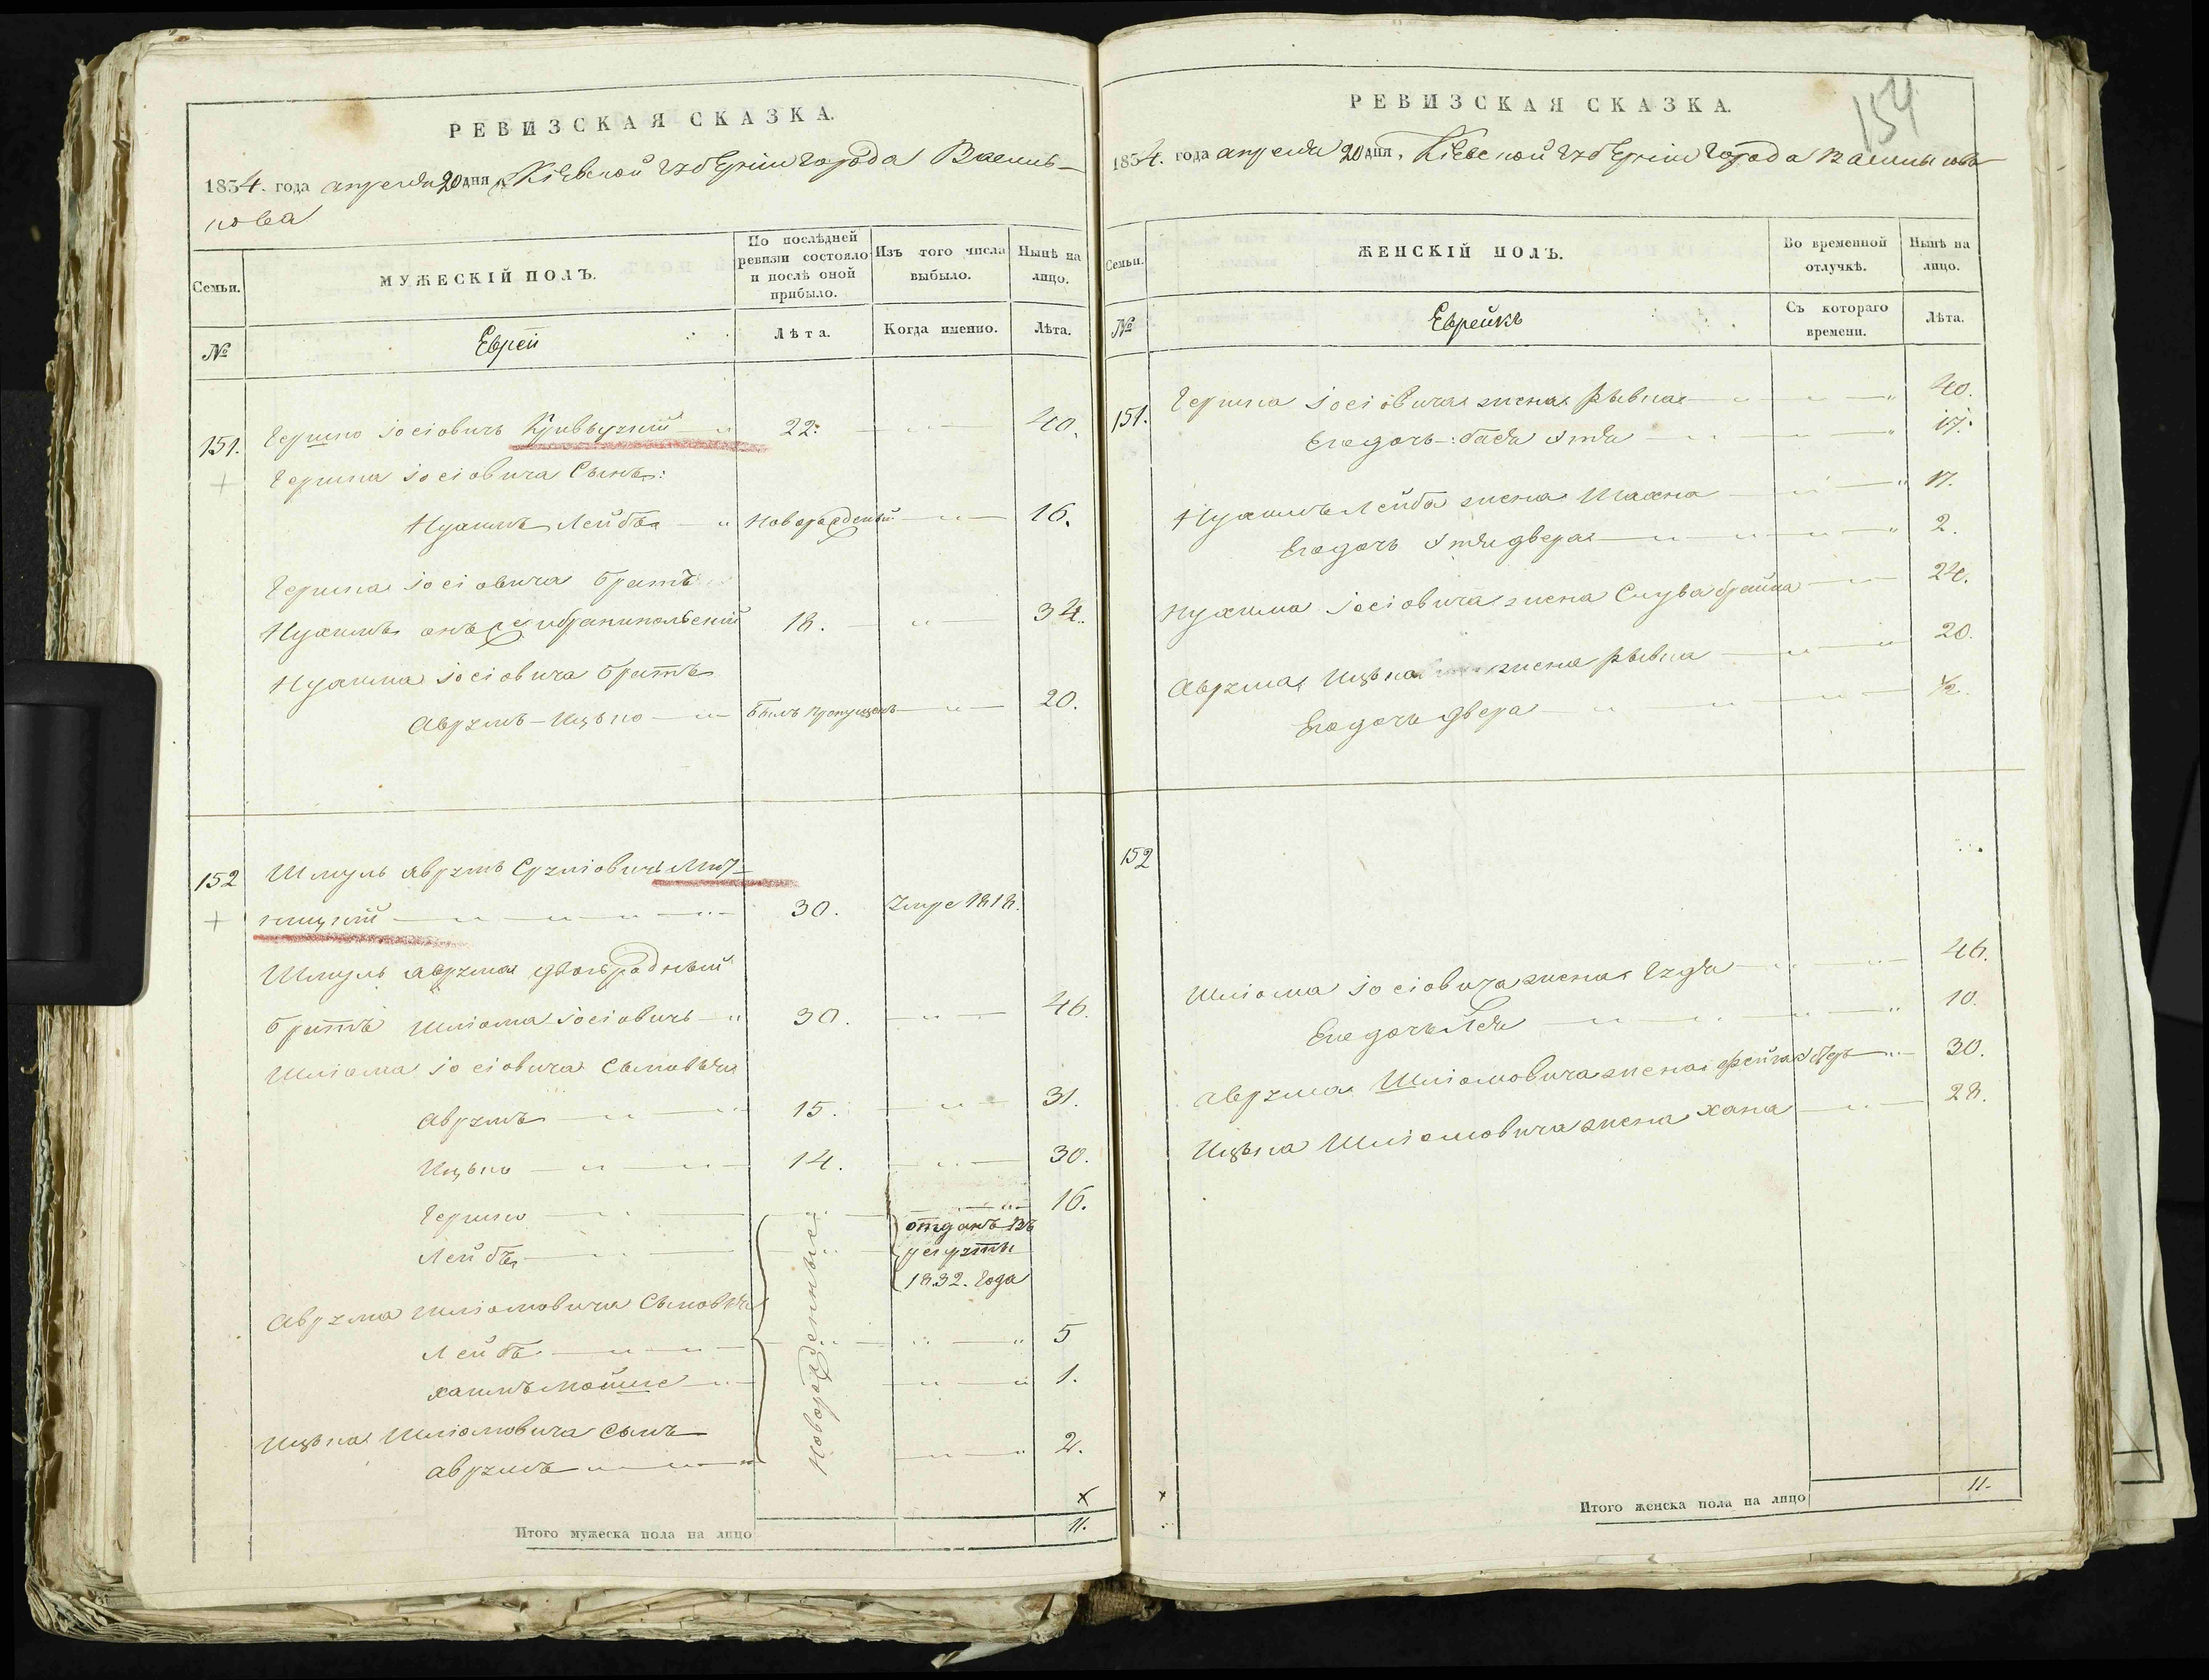 РЕВИЗСКАЯ СКАЗКА.
1834. года апреля 20 дня, Кіевской губерніи города Василь-
кова
Семьи.
МУЖЕСКІЙ ПОЛЪ.
По послѣдней ревизіи состояло и послѣ оной прибыло.
Изъ того числа выбыло.
Нынѣ на лицо.
№
Еврей
Лѣта.
Когда именно.
Лѣта.
151. Гершко Іосіовичъ 22. 40.
Гершка Іосіовича Сынъ:
Нухимъ Лейба новорожденный 16.
Гершка Іосіовича братъ
Нухимъ 18. 34.
Нухима Іосіовича братъ
Аврумъ-Ицько былъ пропущенъ 20.
152 Шмуль Аврумъ Сруліовичъ
30. умре 1818.
Шмуль Аврума двоюродный
братъ Шліома Іосіовичъ 30. 46.
Шліома Іосіовича сыновья
Аврумъ 15. 31.
Ицько 14. 30.
Гершко 16.
Лейба отданъ въ рекруты 1832. года
Аврума Шліомовича сыновья
новорожденные
Лейба 5
Хаимъ Мошко 1.
Ицька Шліомовича сынъ
Аврумъ 2.
х
Итого мужеска пола на лицо 11.
154
РЕВИЗСКАЯ СКАЗКА.
1834. года апреля 20 дня, Кіевской губерніи города Василькова
Семьи.
ЖЕНСКІЙ ПОЛЪ.
Во временной отлучкѣ.
Нынѣ на лицо.
№
Еврейкъ
Съ котораго времени.
Лѣта.
151. Гершка Іосіовича жена Рывка 40.
Его дочь: Бася Этля 17.
Нухима Лейба жена 17.
Его дочь Этля двера 2.
Нухима Іосіовича жена 24.
Аврума Ицька жена Рывка 20.
Его дочь двера 1/2.
152
Шліома Іосіовича жена 46.
Его дочь Лея 10.
Аврума Шліомовича жена 30.
Ицька Шліомовича жена Хана 28.
х
Итого женска пола на лицо 11.